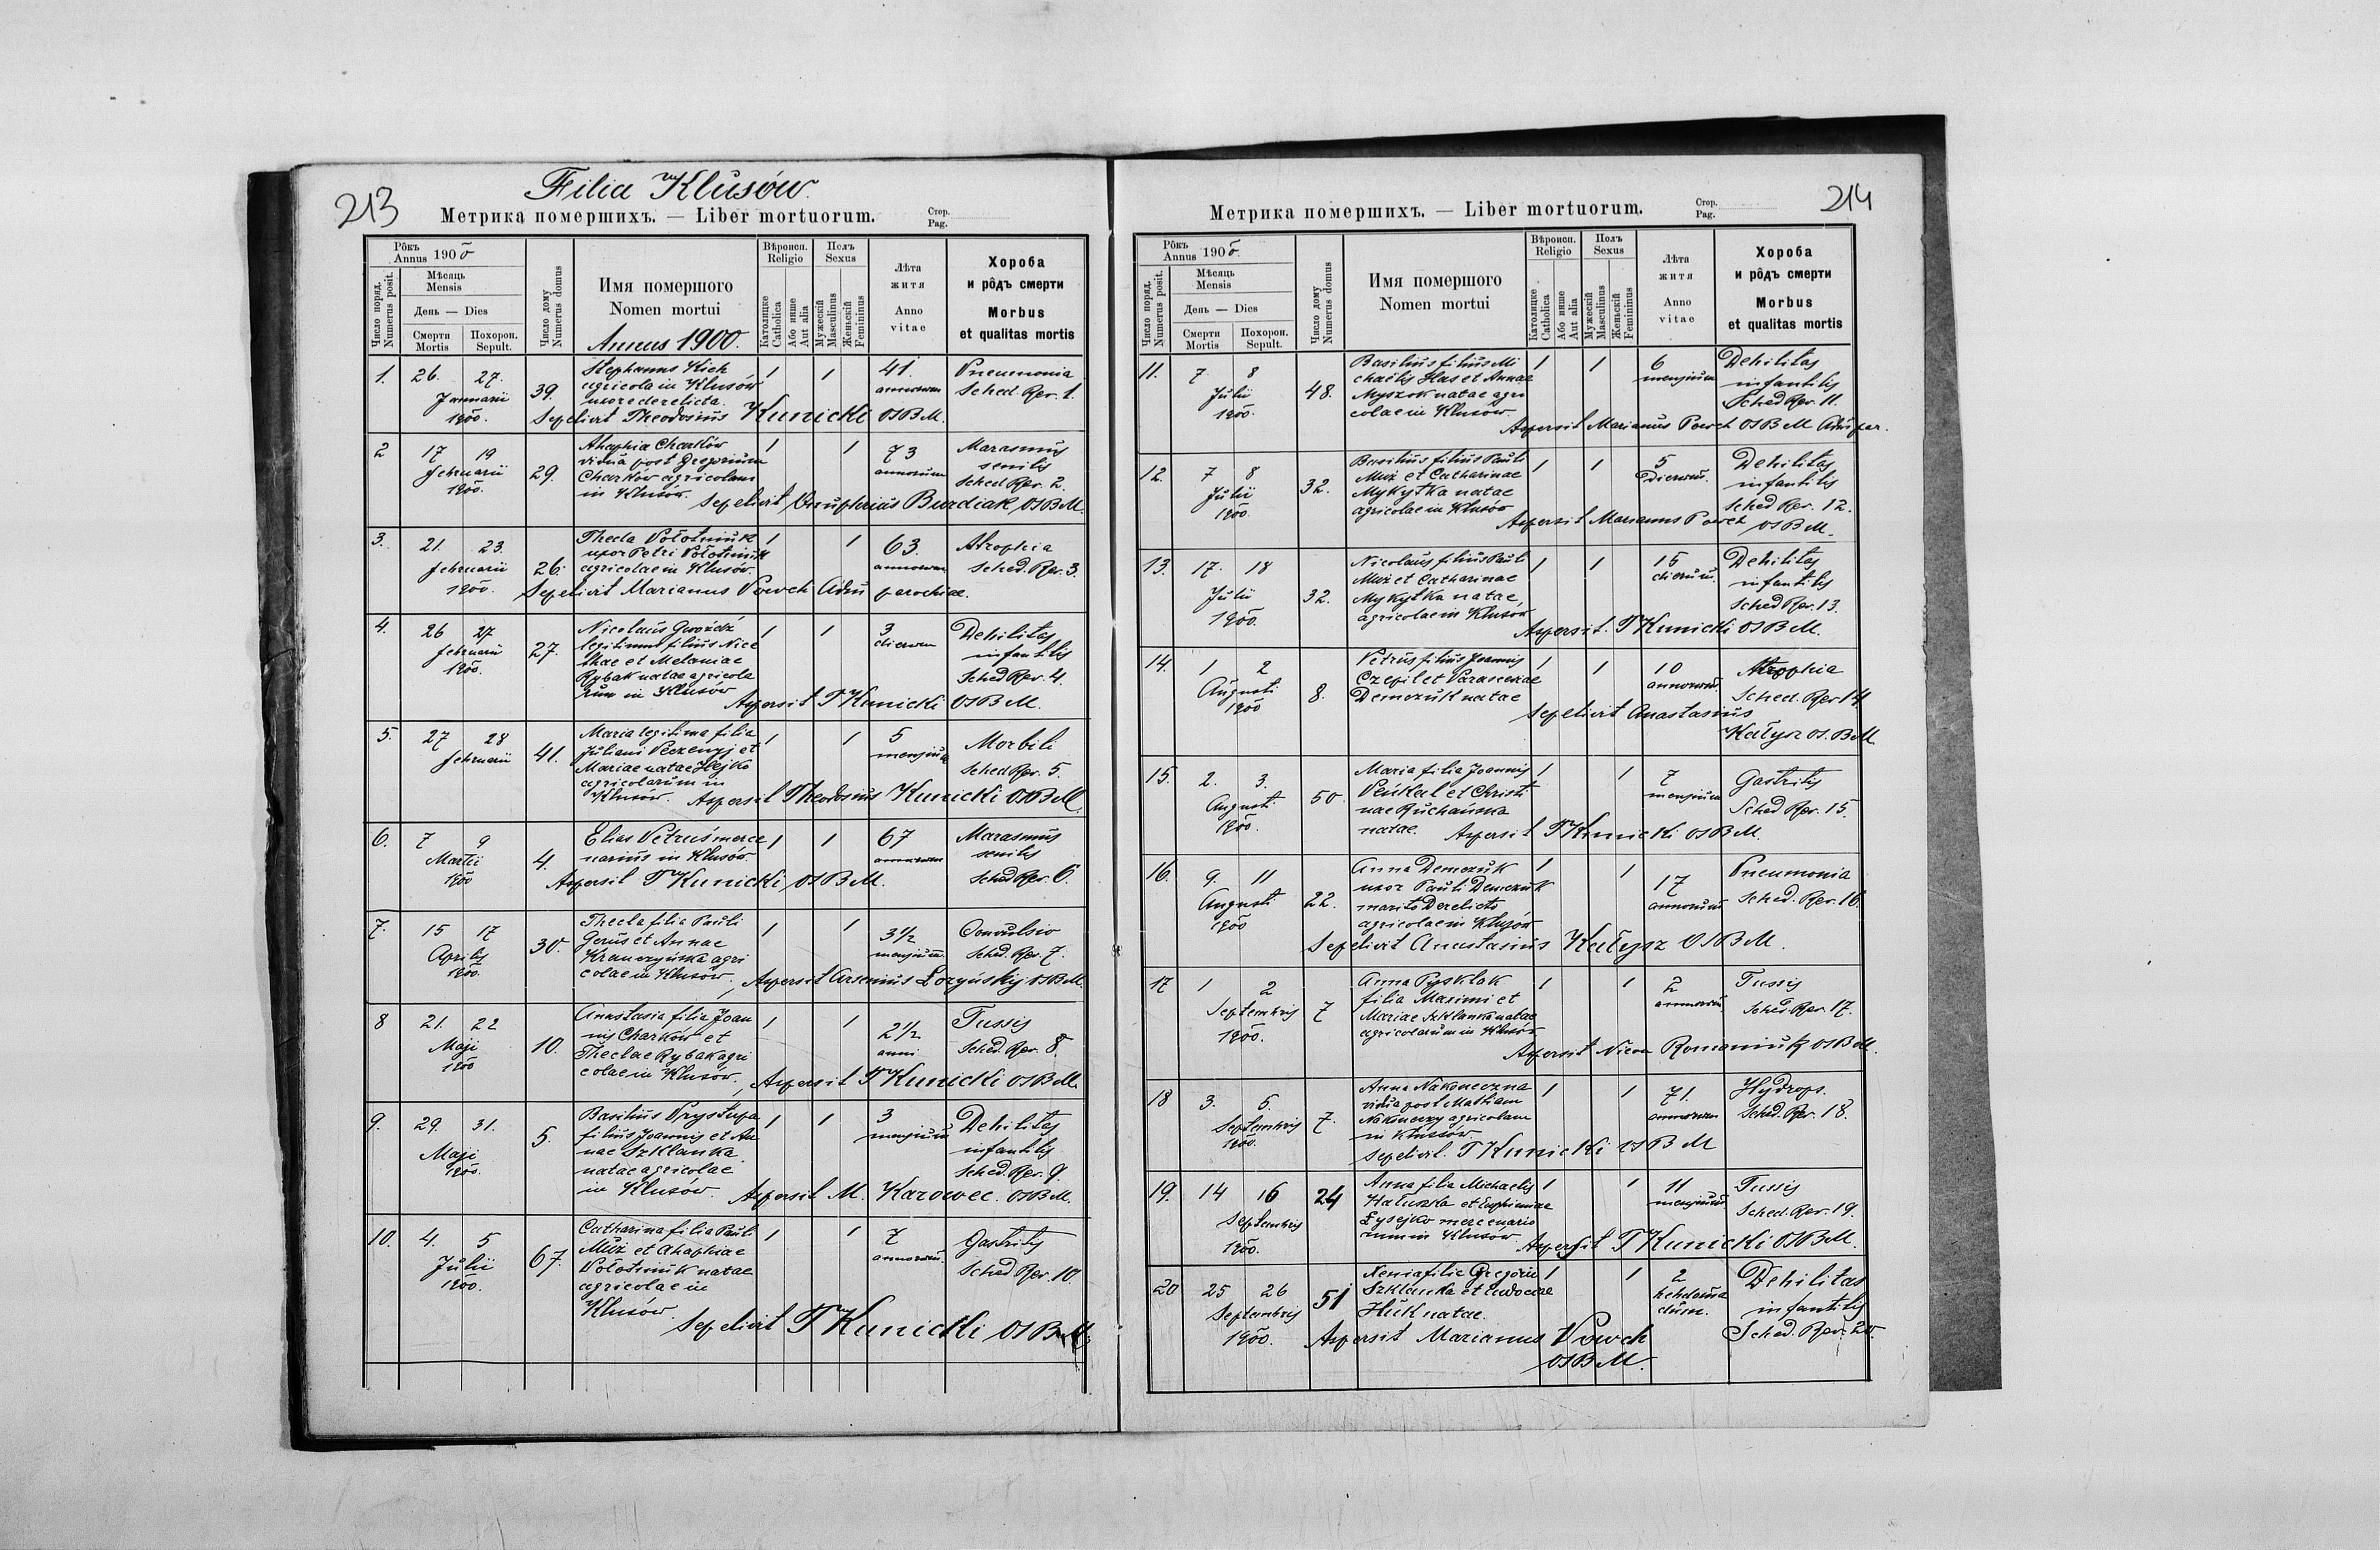 213
Filia Klusów.
Метрика помершихъ. — Liber mortuorum.
Стор.
Pag.
Рôкъ
Annus 1900
Число поряд.
Numerus posit.
Мѣсяць
Mensis
День — Dies
Смерти
Mortis
Похорон.
Sepult.
Число дому
Numerus domus
Имя помершого
Nomen mortui
Annus 1900.
Вѣроисп.
Religio
Католицке
Catholica
Або инше
Aut alia
Полъ
Sexus
Мужескій
Masculinus
Женьскій
Femininus
Лѣта
житя
Anno
vitae
Хороба
и рôдъ смерти
Morbus
et qualitas mortis
1. 26. 27. Januarii 1900. 39.
Stephanus Kich
agricola in Klusów
uxore derelicta.
1 1 41. annorum
Pneumonia
Sched. Rev. 1.
Sepelivit Theodosius Kunicki OSBM.
2 17 19 februarii 1900. 29.
Ahaphia Charków
vidua post Gregorium
Charków agricolam
in Klusów.
1 1 73 annorum
Marasmus
senilis
Sched Rev. 2.
Sepelivit Onuphrius Burdiak OSBM.
3. 21. 23. februarii 1900. 26.
Thecla Połotniuk
uxor Petri Połotniuk
agricolae in Klusów.
1 1 63. annorum
Atrophia
Sched. Rev. 3.
Sepelivit Marianus Powch Adm parochiae.
4. 26 27 februarii 1900. 27.
Nicolaus Gwoźdź
legitimus filius Nice
thae et Melaniae
Rybak natae agricola
rum in Klusów
1 1 3 dierum
Debilitas
infantilis
Sched Rev. 4.
Aspersit T Kunicki OSBM.
5. 27 28 februarii 41.
Maria legitima filia
Juliani Peczenyj et
Mariae natae Hejko
agricolarum in
Klusów.
1 1 5 mensium
Morbili
Sched Rev. 5.
Aspersit Theodosius Kunicki OSBM.
6. 7 9 Martii 1900 4.
Elias Petruś merce
narius in Klusów.
1 1 67 annorum
Marasmus
senilis
Sched Rev. 6.
Aspersit T Kunicki OSBM.
7. 15 17 Aprilis 1900. 30.
Thecla filia Pauli
Gerus et Annae
Krawczyńska agri
colae in Klusów.
1 1 3 1/2 mensium.
Convulsio
Sched. Rev. 7.
Aspersit Arsenius Łozyńskyj OSBM.
8 21. 22 Maji 1900 10.
Anastasia filia Joan
nis Charków et
Theclae Rybak agri
colae in Klusów.
1 1 2 1/2 anni
Tussis
Sched. Rev. 8.
Aspersit T Kunicki OSBM.
9. 29. 31. Maji 1900. 5.
Basilius Prystupa
filius Joannis et An
nae Szklanka
natae agricolae
in Klusów.
1 1 3 mensium
Debilitas
infantilis
Sched. Rev. 9.
Aspersit M. Karowec. OSBM.
10. 4. 5 Julii 1900. 67.
Catharina filia Pauli
Muż et Ahaphiae
Połotniuk natae
agricolae in
Klusów
1 1 7 annorum.
Gastritis
Sched Rev. 10.
Sepelivit T Kunicki OSBM.
214
Метрика помершихъ. — Liber mortuorum.
Стор.
Pag.
Рôкъ
Annus 1900.
Число поряд.
Numerus posit.
Мѣсяць
Mensis
День — Dies
Смерти
Mortis
Похорон.
Sepult.
Число дому
Numerus domus
Имя помершого
Nomen mortui
Вѣроисп.
Religio
Католицке
Catholica
Або инше
Aut alia
Полъ
Sexus
Мужескій
Masculinus
Женьскій
Femininus
Лѣта
житя
Anno
vitae
Хороба
и рôдъ смерти
Morbus
et qualitas mortis
11. 7. 8 Julii 1900. 48.
Basilius filius Mi
chaëlis Has et Annae
Myszok natae agri
colae in Klusów.
1 1 6 mensium
Debilitas
infantilis
Sched Rev. 11.
Aspersit Marianus Powch OSBM Adm par.
12. 7 8 Julii 1900. 32.
Basilius filius Pauli
Muż et Catharinae
Mykytka natae
agricolae in Klusów
1 1 5 dierum.
Debilitas
infantilis
Sched Rev. 12.
Aspersit Marianus Powch OSBM.
13. 17. 18 Julii 1900. 32.
Nicolaus filius Pauli
Muż et Catharinae
Mykytka natae,
agricolae in Klusów
1 1 15 dierum.
Debilitas
infantilis
Sched Rev. 13.
Aspersit. T Kunicki OSBM.
14. 1 2 Augusti 1900 8.
Petrus filius Joannis
Czepil et Parasceviae
Demczuk natae
1 1 10 annorum.
Atrophia
Sched. Rev 14.
Sepelivit Anastasius
Kałysz OSBM
15. 2. 3. Augusti 1900. 50.
Maria filia Joannis
Peńkal et Christi
nae Ruchańska
natae.
1 1 7 mensium
Gastritis
Sched Rev. 15.
Aspersit T Kunicki OSBM.
16. 9. 11 Augusti 1900 22.
Anna Demczuk
uxor Pauli Demczuk
marito Derelicto
agricolae in Klusów
1 1 17 annorum
Pneumonia
Sched. Rev. 16.
Sepelivit Anastasius Kałysz OSBM.
17 1 2 Septembris 1900. 7
Anna Pysklak
filia Maximi et
Mariae Szklanka natae
agricolarum in Klusów
1 1 2 annorum
Tussis
Sched. Rev. 17.
Aspersit Nicon Romaniuk OSBM.
18 3. 5. Septembris 1900. 7.
Anna Nakoneczna
vidua post Mathiam
Nakoneczny agricolam
in Klusów.
1 1 71. annorum
Hydrops.
Sched. Rev. 18.
Sepelivit. T Kunicki OSBM
19. 14 16 Septembris 1900. 24
Anna filia Michaelis
Hałuszka et Euphemiae
Łysejko mercenario
rum in Klusów
1 1 11 mensium.
Tussis
Sched. Rev. 19.
Aspersit T Kunicki OSBM.
20 25 26 Septembris 1900. 51
Xenia filia Gregorii
Szklanka et Eudociae
Huk natae.
1 1 2 hebdoma
dum.
Debilitas
infantilis
Sched. Rev. 20.
Aspersit Marianus Powch
OSBM.